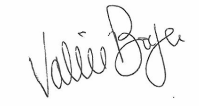 Valérie Boyer